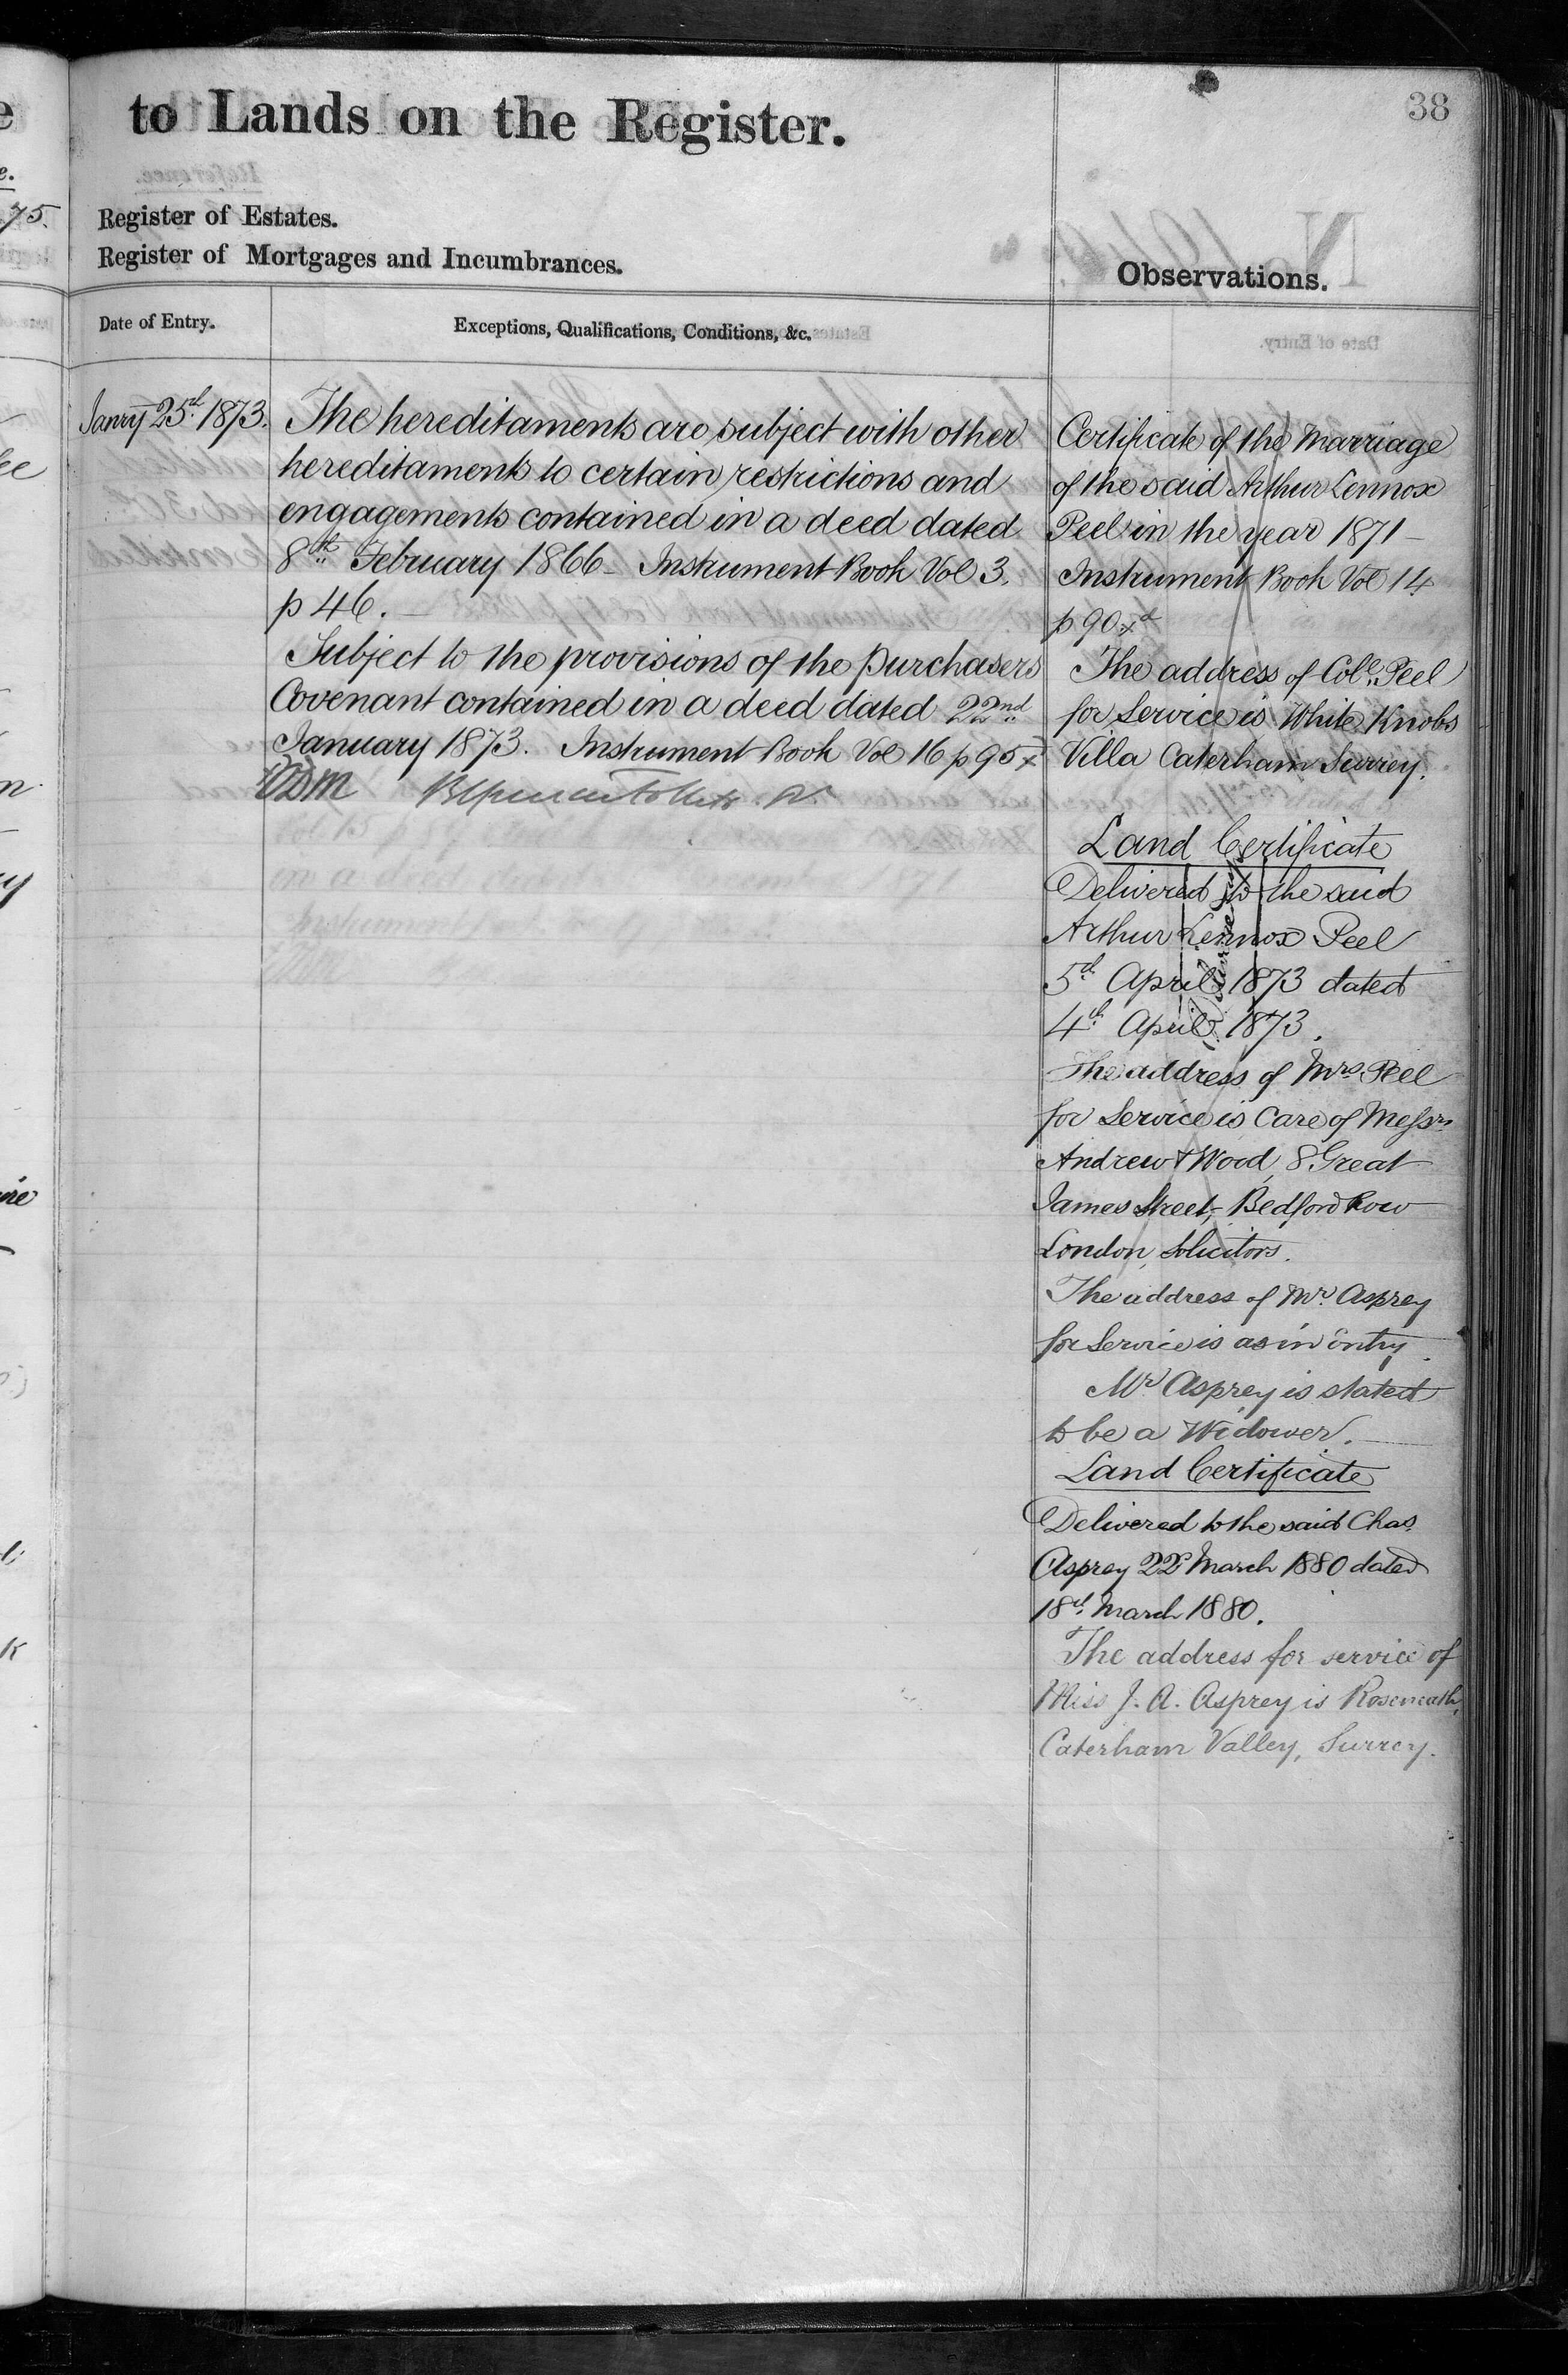 38
to Lands on the Register.
Register of Estates.
Register of Mortgages and Incumbrances.
Observations.
Date of Entry.
Exceptions, Qualifications, Conditions, &c.
Janry 25th 1873.
The hereditaments are subject with other
hereditaments to certain restrictions and
engagements contained in a deed dated
8th February 1866 - Instrument Book Vol 3.
p 46.
Subject to the provisions of the Purchasers
Covenant contained in a deed dated 22nd
January 1873. Instrument Book Vol 16 p 95 x
Certificate of the Marriage
of the said Arthur Lennox
Peel in the year 1871 -
Instrument Book Vol 14
p 90
The address of Col. Peel
for Service is White Knobs
Villa Caterham Surrey.
Land Certificate
Delivered to the said
Arthur Lennox Peel
5th April 1873 dated
4th April 1873.
The address of Mrs Peel
for Service is Care of Messrs
Andrew & Wood, 8 Great
James Street, Bedford Row
London, Solicitors.
The address of Mr. Asprey
for Service is as in Entry.
Mr Asprey is stated
to be a Widower.
Land Certificate
Delivered to the said Chas.
Asprey 22d March 1880 dated
18th March 1880.
The address for service of
Miss J. A. Asprey is Roseneath,
Caterham Valley, Surrey.